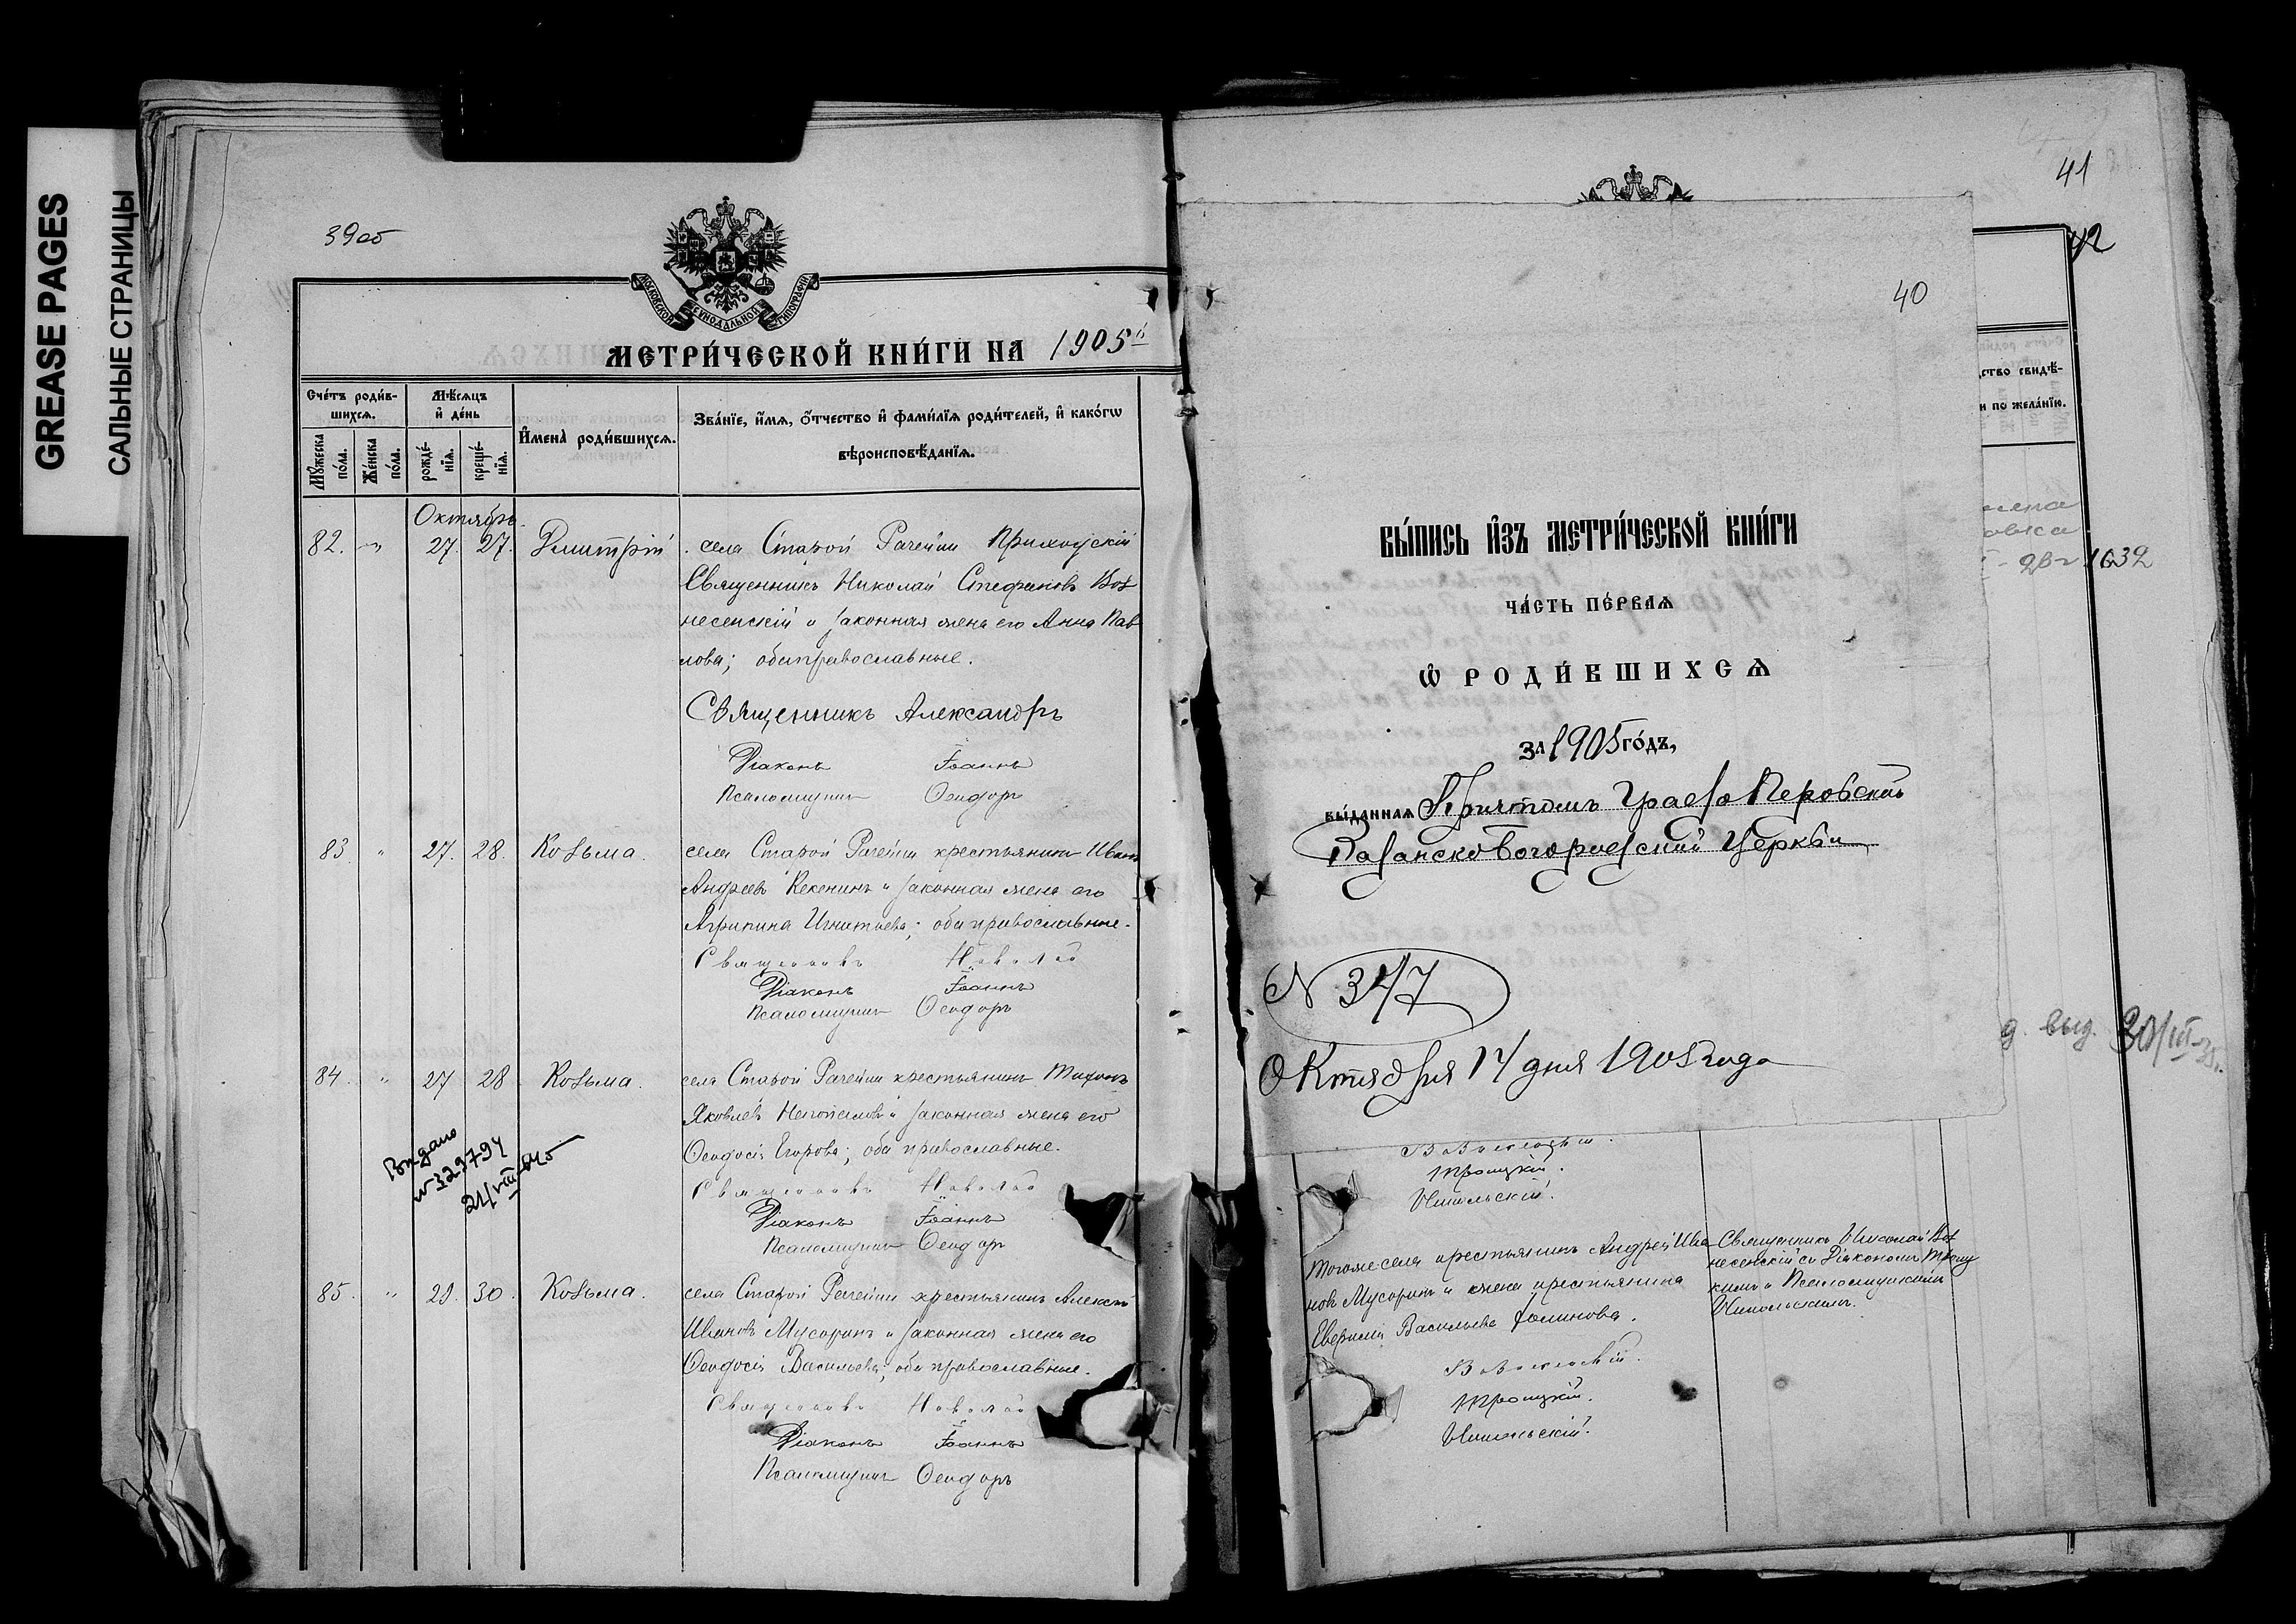 GREASE PAGES
САЛЬНЫЕ СТРАНИЦЫ
39об
МОСКОВСКОЙ СѴНОДАЛЬНОЙ ТИПОГРАФІИ
МЕТРИ́ЧЕСКОЙ КНИ́ГИ НА 1905й
Сче́тъ роди́в-
шихсѧ.
Му́жеска по́ла.
Же́нска по́ла.
Мѣ́сяцъ
и҆ де́нь
рожде́-нїѧ.
креще́-нїѧ.
И҆мена̀ роди́вшихсѧ.
Зва́нїе, и҆́мѧ, ѻ҆́тчество и҆ фами́лїѧ роди́телей, и҆ како́гѡ
вѣроисповѣ́данїѧ.
Октябрь.
82. " 27. 27. Димитрій. села Старой Рачейки Приходскій
Священникъ Николай Стефановъ Воз
несенскій и законная жена его Анна Пав
лова; оба православные.
Священникъ Александръ
Діаконъ Іоаннъ
Псаломщикъ Ѳеодоръ
83. " 27. 28. Козьма. села Старой Рачейки крестьянинъ Иванъ
Андреевъ Кекенинъ и законная жена его
Агрипина Игнатьева; оба православные.
Священникъ Николай
Діаконъ Іоаннъ
Псаломщикъ Ѳеодоръ
84. " 27 28 Козьма. села Старой Рачейки крестьянинъ
Яковлевъ и законная жена его
Ѳеодосія Егорова; оба православные.
Священникъ Николай
Діаконъ Іоаннъ
Псаломщикъ Ѳеодоръ
Выдано
№ 329794
21/VIII
85. " 29. 30. Козьма. села Старой Рачейки крестьянинъ Алексѣй
Ивановъ Мусоринъ и законная жена его
Ѳеодосія Васильева; оба православные.
Священникъ Николай
Діаконъ Іоаннъ
Псаломщикъ Ѳеодоръ
41
42
40
ство свидѣ-
и по жела́нїю.
1632
ВЫ́ПИСЬ И҆ЗЪ МЕТРИ́ЧЕСКОЙ КНИ́ГИ
ЧА́СТЬ ПЕ́РВАѦ
Ѡ҆ РОДИ́ВШИХСѦ
ЗА 1905 ГО́ДЪ,
ВЫ́ДАННАѦ Причтомъ Графо Перовской
Казанско Богородской Церкви
N 347
Октября 14 дня 1905 года
выд.
Вознесенскій.
Троицкій.
Никольскій.
Тогоже села крестьянинъ Андрей Ива
новъ Мусоринъ и жена крестьянина
Евфимія Васильева Фолинова.
Священникъ Николай Воз
несенскій съ Діакономъ Троиц
кимъ и Псаломщикомъ
Никольскимъ.
Вознесенскій.
Троицкій.
Никольскій.